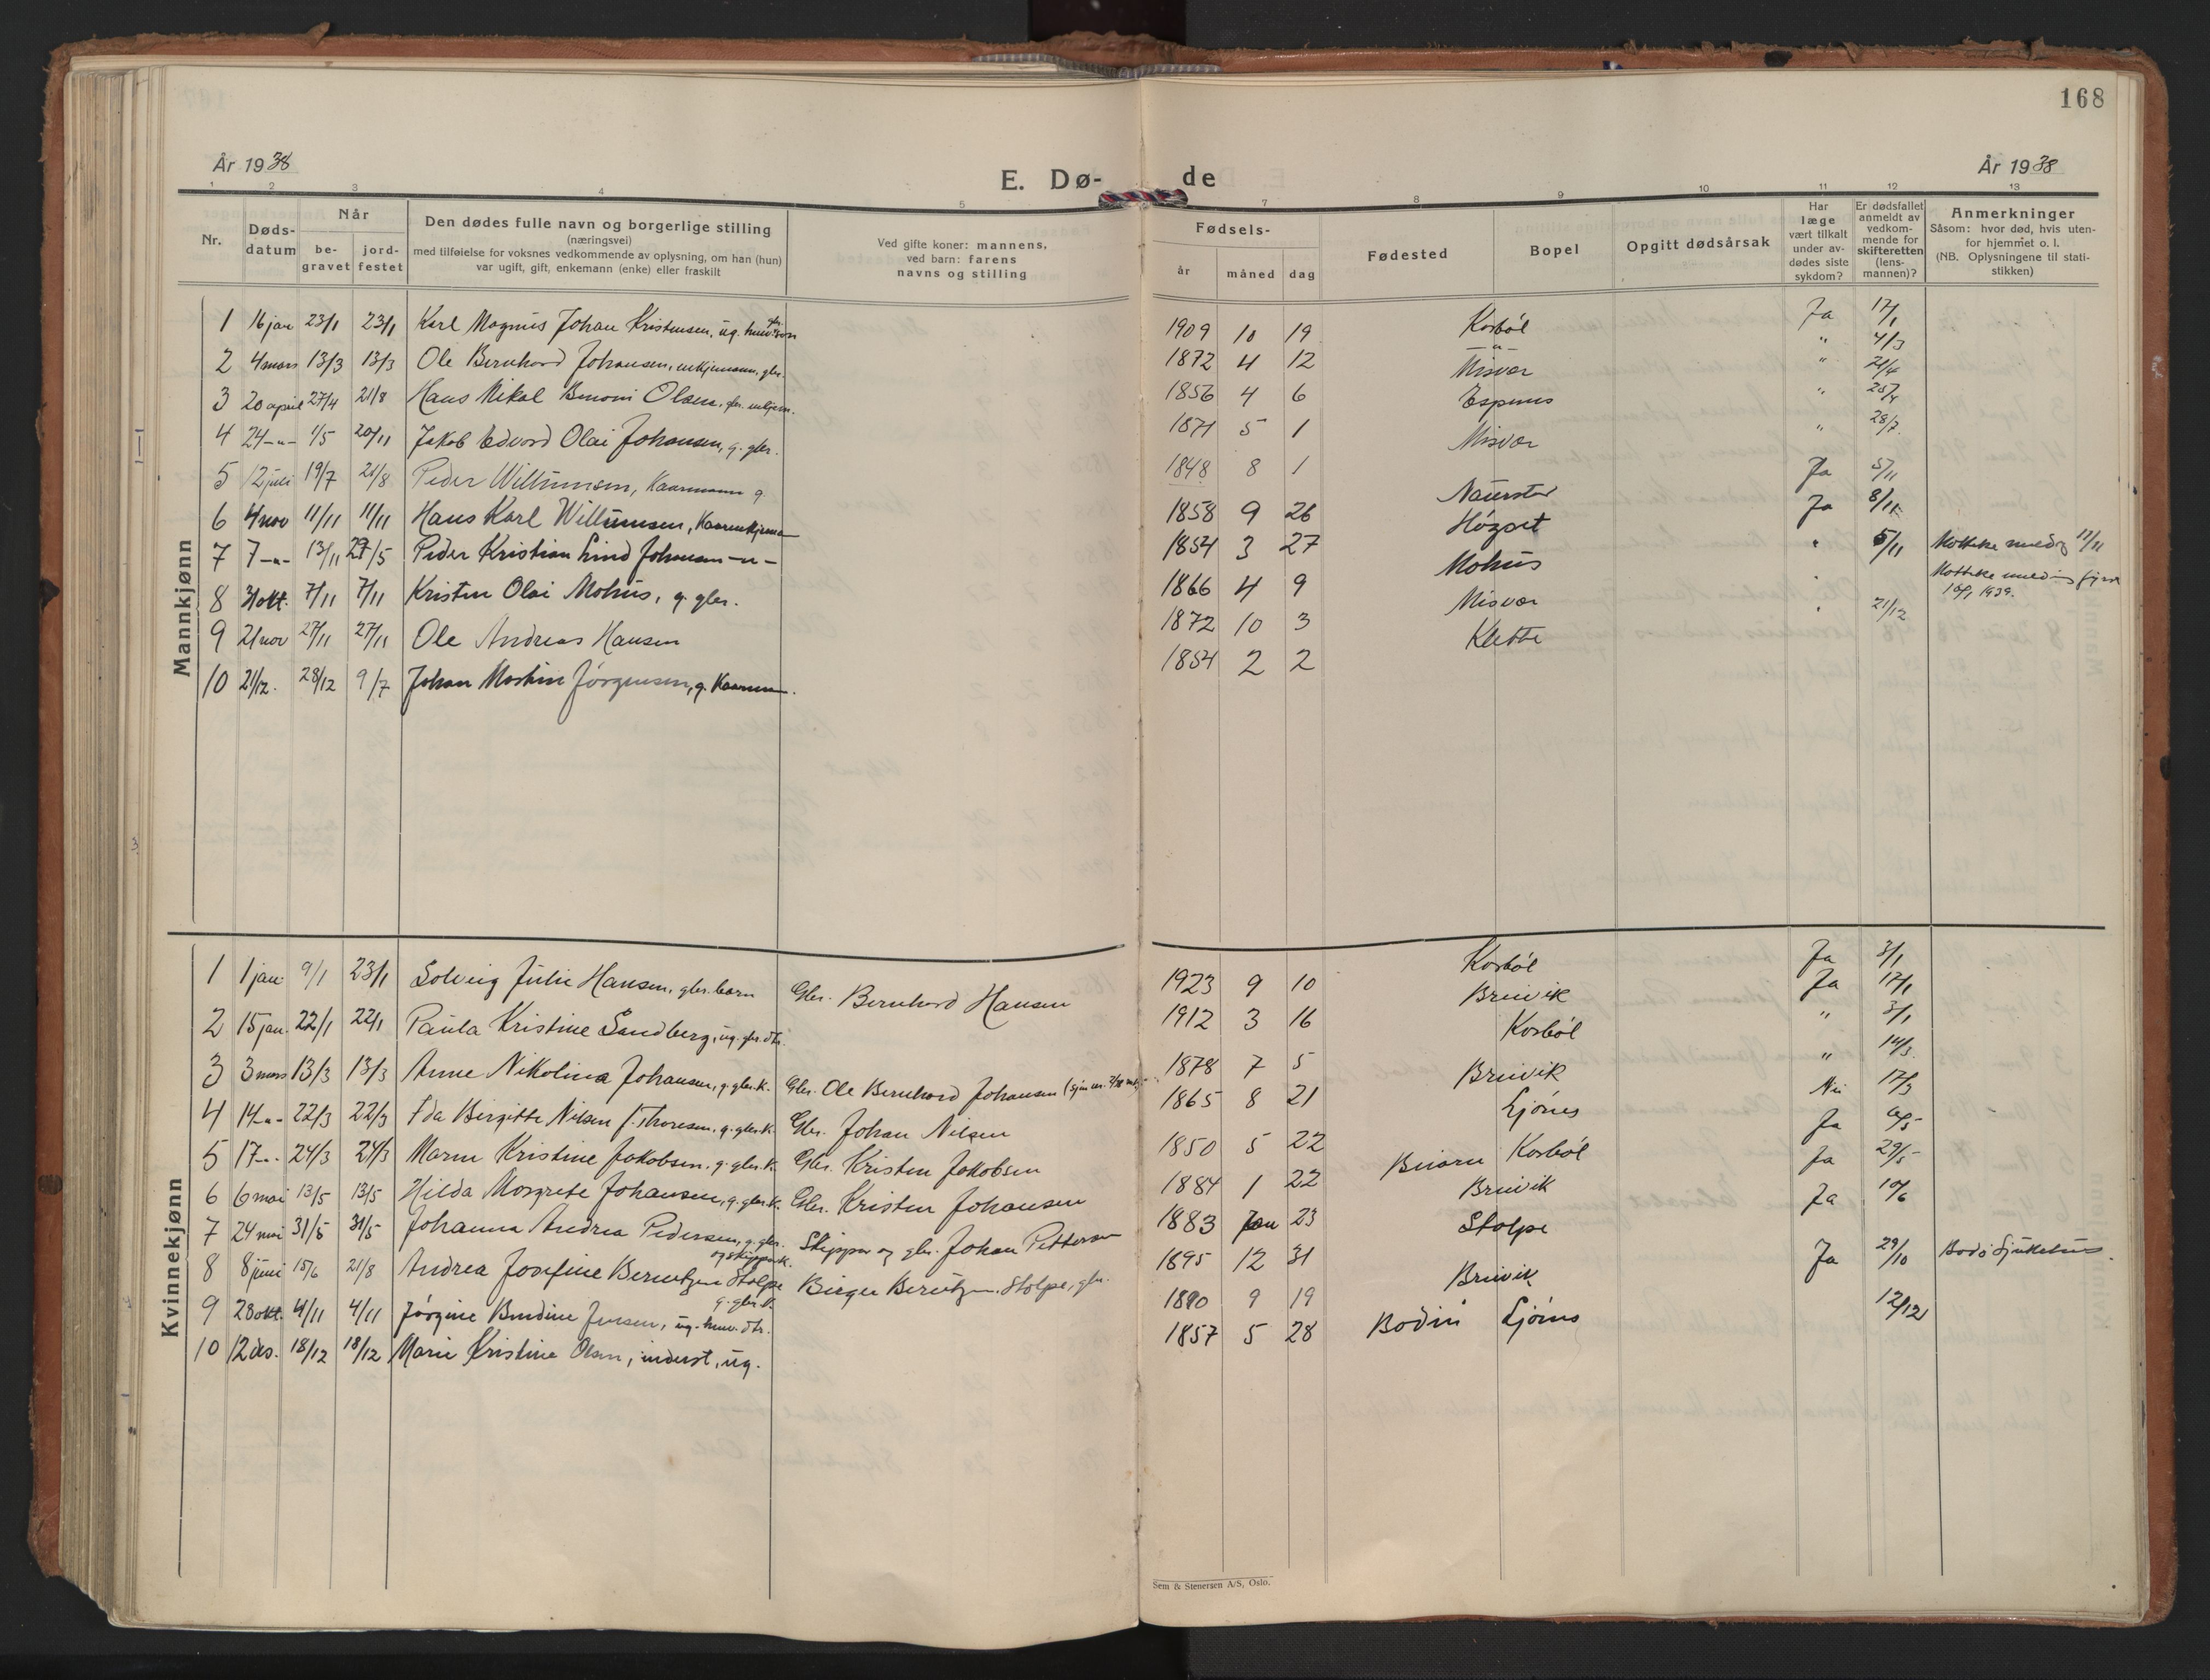 168
År 1938
E. Dø-
de
År 1938
1 2 3 4 5 7 8 9 10 11 12 13
Nr.
Døds-
datum
Når
be-
gravet
jord-
festet
Den dødes fulle navn og borgerlige stilling
(næringsvei)
med tilføielse for voksnes vedkommende av oplysning, om han (hun)
var ugift, gift, enkemann (enke) eller fraskilt
Ved gifte koner: mannens,
ved barn: farens
navns og stilling
Fødsels-
år måned dag
Fødested
Bopel
Opgitt dødsårsak
Har
læge
vært tilkalt
under av-
dødes siste
sykdom?
Er dødsfallet
anmeldt av
vedkom-
mende for
skifteretten
(lens-
mannen)?
Anmerkninger
Såsom: hvor død, hvis uten-
for hjemmet o. l.
(NB. Oplysningene til stati-
stikken)
Mannkjønn
1 16 jan 23/1 23/1 Karl Magnus Johan Kristensen, ug. 1909 10 19 Korbøl Ja 17/1
2 4 mars 13/3 13/3 Ole Bernhard Johansen, enkjemann, gbr. 1872 4 12 -"- " 4/3
3 20 april 27/4 21/8 Hans Nikal Benoni Olsen, gbr. enkjem. 1856 4 6 Misvær " 21/4
4 24 -"- 1/5 20/11 Jakob Edvard Olai Johansen, g. gbr. 1871 5 1 Espnes " 25/4
5 12 juli 19/7 21/8 Peder Willumsen, Kaarmann g. 1848 8 1 Misvær " 28/7
6 4 nov 11/11 11/11 Hans Karl Willumsen, Kaarenkjemann 1858 9 26 Naurstad Ja 5/11
7 7 -"- 13/11 27/5 Peder Kristian Lind Johansen -"- 1854 3 27 Høgset Ja 8/11
8 31 okt. 7/11 7/11 Kristen Olai Mohus, g. gbr. 1866 4 9 Mohus " 5/11 Motteke melding 11/11
9 21 nov 27/11 27/11 Ole Andreas Hansen 1872 10 3 Misvær " Motteke melding
1939.
10 21/12. 28/12 9/7 Johan Martin Jörgensen, g. Kaarmann. 1854 2 2 Klette " 21/12
Kvinnekjønn
1 1 jan 9/1 23/1 Solveig Julie Hansen, gbr. barn Gbr. Bernhard Hansen 1923 9 10 Korbøl Ja 3/1
2 15 jan. 22/1 22/1 Paula Kristine Sandberg, ug. gbr. dtr. 1912 3 16 Breivik Ja 17/1
3 3 mars 13/3 13/3 Anne Nikolina Johansen, g. gbr. k. Gbr. Ole Bernhard Johansen 1878 7 5 Korbøl " 3/1
4 14 -"- 22/3 22/3 Ida Birgitte Nilsen f. Thoresen, g. gbr. k. Gbr. Johan Nilsen 1865 8 21 Breivik " 14/3
5 17 -"- 24/3 24/3 Maren Kristine Jakobsen, g. gbr. k. Gbr. Kristen Jakobsen 1850 5 22 Ljönes Nei 17/3
6 6 mai 13/5 13/5 Hilda Margrete Johansen, g. gbr. k. Gbr. Kristen Johansen 1884 1 22 Beiarn Korbøl Ja
7 24 mai 31/5 31/5 Johanna Andrea Pedersen, g. gbr.
og skipperk. Skipper og gbr. Johan Pettersen 1883 Jan 23 Breivik Ja 29/5
8 8 juni 15/6 21/8 Andrea Josefine Berntzen Stolpe
g. gbr. k. Birger Berntzen Stolpe, gbr. 1895 12 31 Stolpe Ja 10/6
9 28 okt. 4/11 4/11 Jörgine Bendine Jensen, ug. dtr. 1890 9 19 Breivik Ja 29/10 Bodö Sjukehus.
10 12 des. 18/12 18/12 Marie Kristine Olsen, inderst, ug. 1857 5 28 Bodin Ljönes 12/12
Sem & Stenersen A/S, Oslo.